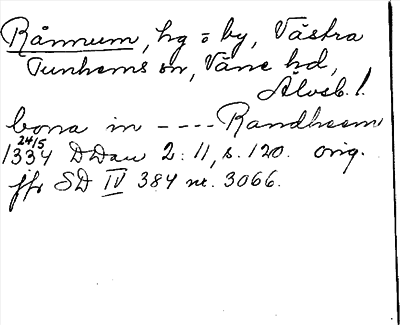 Rånnum, hg = by, Västra
Tunhems sn, Väne hd,
Älvsb. l.
bona in ---- Randheem
24/5
1334 DDan 2:11, s. 120. orig.
jfr SD IV 384 nr. 3066.